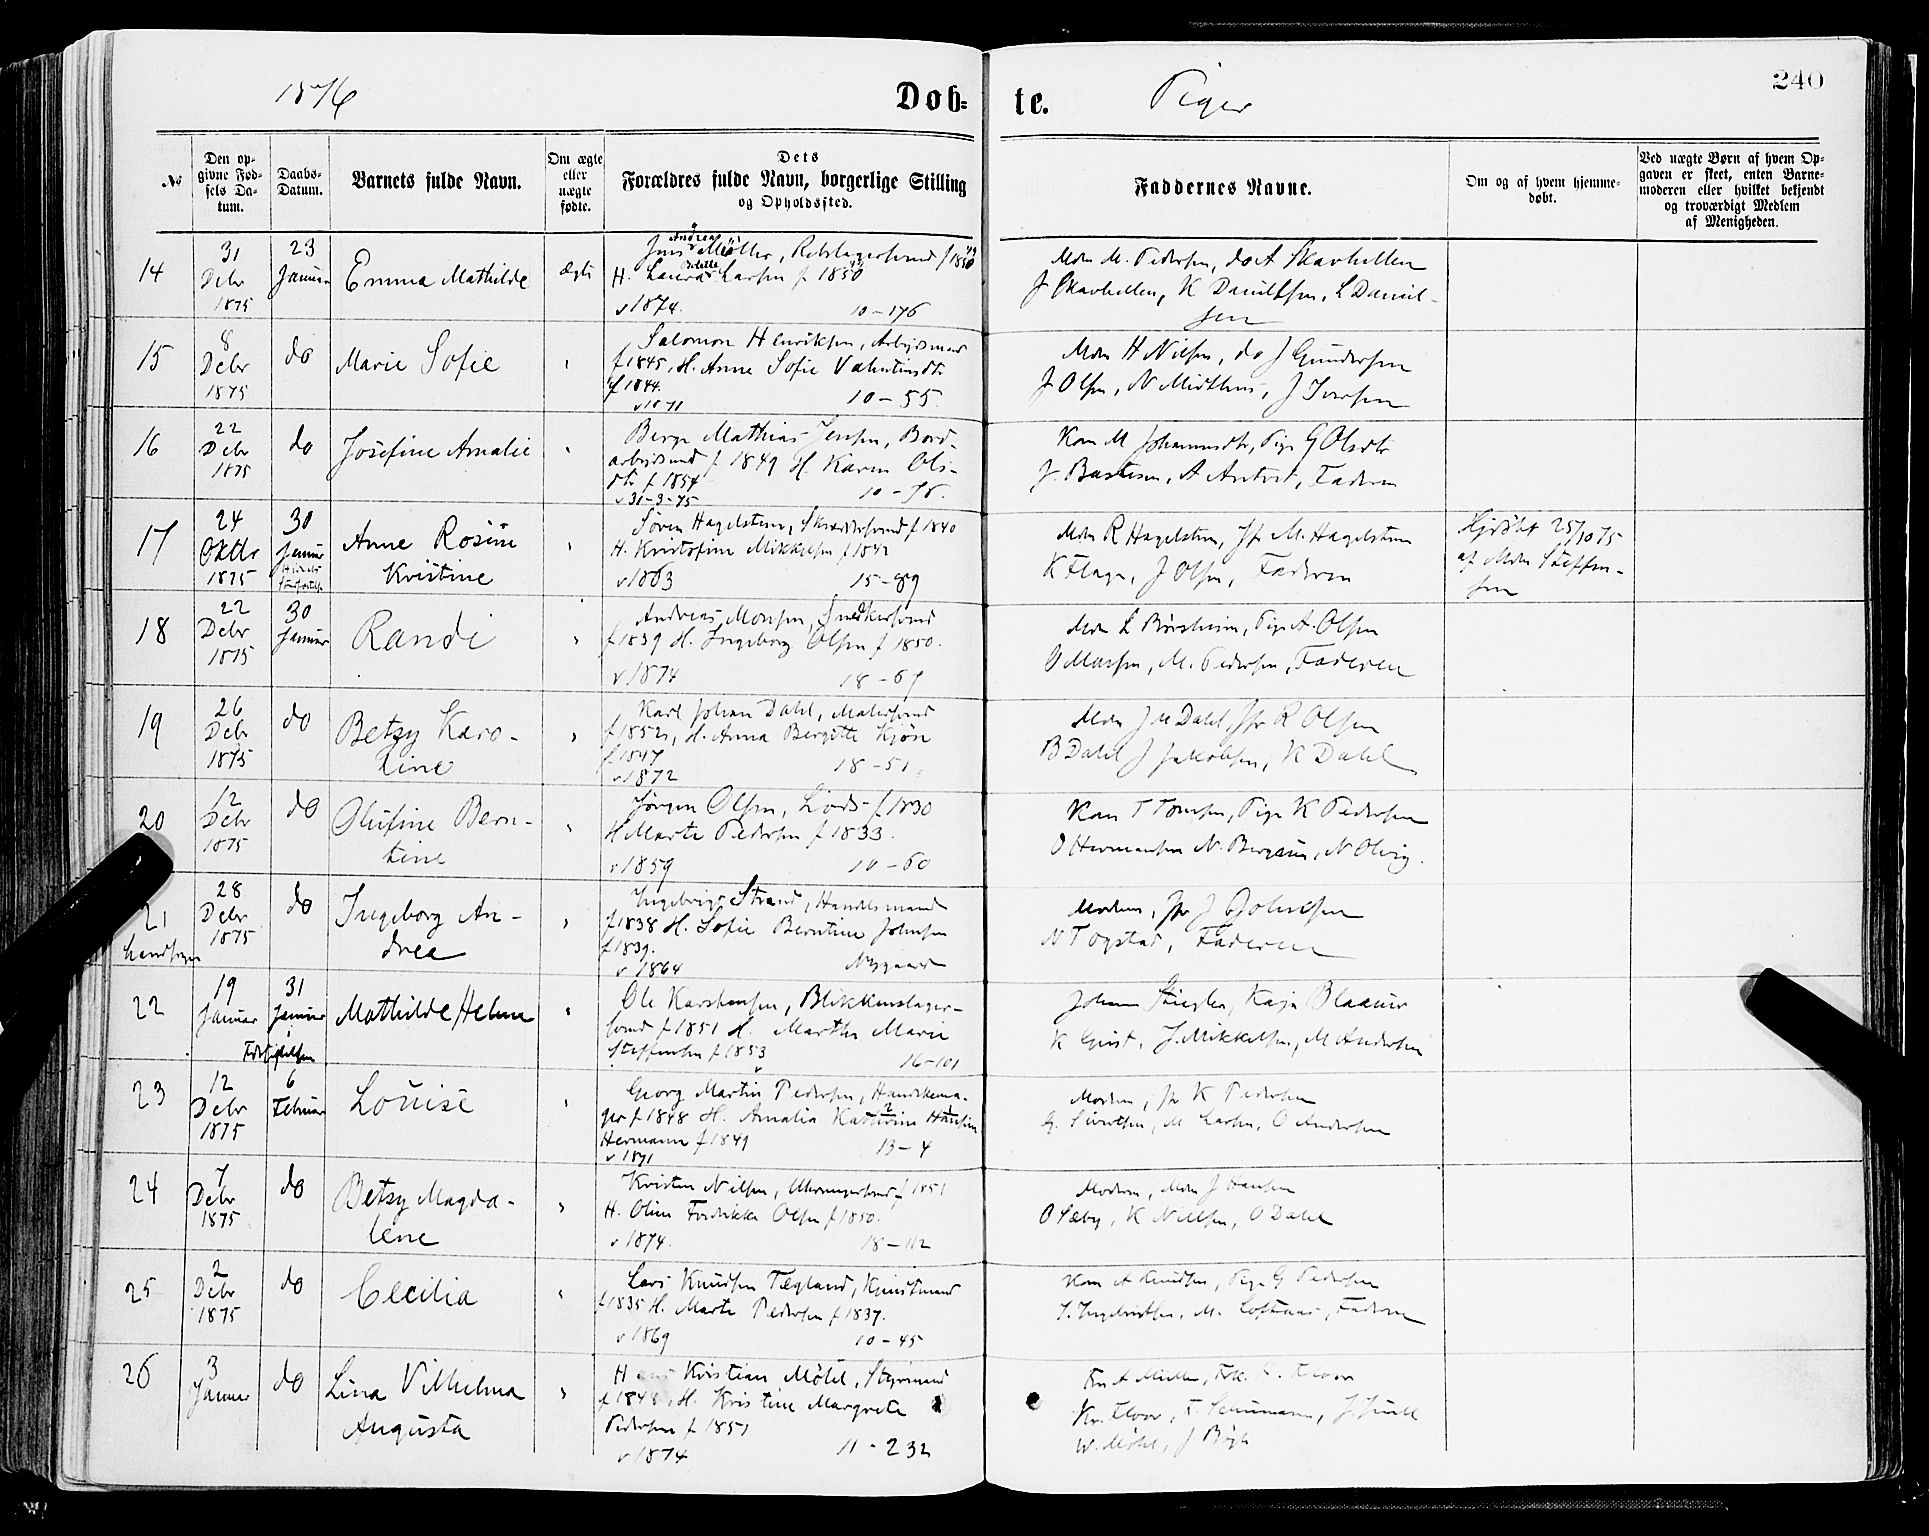 1876
Döb-
te.
Piger
240
№
Den op-
givne Fød-
sels Da-
tum.
Daabs-
Datum.
Barnets fulde Navn.
Om ægte
eller
uægte
fødte.
Dets
Forældres fulde Navn, borgerlige Stilling
og Opholdssted.
Faddernes Navne.
Om og af hvem hjemme-
døbt.
Ved uægte Børn af hvem Op-
gaven er skeet, enten Barne-
moderen eller hvilket bekjendt
og troværdigt Medlem
af Menigheden.
14
31
Debr
1875
23
Januar
Emma Mathilde
ægte
Andreas
Jens Møller, Rebslagersvend f 1850
H. Laura Larsen f 1850
v 1874. 10-176
Mdm M. Pedersen, do A Skavhellen
J Skavhellen, K Danielsen, L Daniel-
sen
15
8
Debr
1875
do
Marie Sofie
Salomon Henriksen, Arbejdsmand
f 1845, H. Anne Sofie Valentinsdtr
f 1844.
v 1871 10-55.
Mdm H Nilsen, do J Gundersen
J Olsen, N Midthus, J Iversen
16
22
Debr
1875
do
Josefine Amalie
Berge Mathias Jensen, Bord-
arbejdsmd f 1849 H. Karen Ols-
dtr f 1854
v 31-3-75 10-76.
Kone M Johannesdtr, Pige G Olsdtr
J. Bastesen, A Antvedt, Faderen
17
24
Oktbr
1875
30
Januar
Anne Rosine
Kristine
Søren Hagelsteen, Skræddersvend f 1840
H. Kristofine Mikkelsen f 1842
v 1863 15-89
Mdm R Hagelsteen, Jfr M. Hagelsteen
K Flage, J Olsen, Faderen
Hjdøbt 25/10 75
af Mdm Steffen-
sen
18
22
Debr
1875
30
Januar
Randi
Andreas Monsen, Snedkersvend
f 1839 H. Ingeborg Olsen f 1850.
v 1874 18-67
Mdm L Børsheim, Pige A. Olsen
O Monsen, M. Pedersen, Faderen
19
26
Debr
1875
do
Betzy Karo-
line
Karl Johan Dahl, Malersvend
f 1852, H. Anna Bergitte Kjøn
f 1847
v 1872 18-51.
Mdm J M Dahl, Jfr R Olsen
B Dahl J Jakobsen, K Dahl
20
12
Debr
1875
do
Olufine Bern-
tine
Jørgen Olsen, Lods- f 1830
H Marte Pedersen f 1833.
v 1859 10-60
Kone T Tomsen, Pige K Pedersen
O Hermansen N. Bergesen, N Olvig.
21
28
Debr
1875
do
Ingeborg An-
drea
Ingebrigt Strand, Handelsmand
f 1838 H. Sofie Berntine Johnsen
f 1839.
v 1864 Nygaard
Landsogn
Moderen, Jfr J Johnsen
N Togstad, Faderen
22
19
Januar
31
Januar
Mathilde Helene
Ole Karstensen, Blikkenslager-
svend f 1851 H. Marthe Marie
Steffensen f 1853
16-101
Johan Stiegler, Kaja Blaauw
K Quist, J. Mikkelsen, M Andersen
23
12
Debr
1875
6
Februar
Louise
Georg Martin Pedersen, Handskema-
ger f 1848 H. Amalia Kathrine Hansine
Hermann f 1849
v 1871 13-4
Moderen, Jfr K Pedersen
G. Sivertsen, M Larsen, O Andersen
24
7
Debr
1875
do
Betzy Magda-
lene
Kristen Nilsen, f 1851
H. Oline Fredrikke Olsen f 1850.
v 1874. 18-112
Moderen, Mdm J Hansen
O Sæby, K Nielsen, O Dahl
25
2
Debr
1875
do
Cecilia
Lars Knudsen Tegland,
f 1835 H. Marte Pedersen f 1837.
v 1869 10-45
Kone A Knudsen, Pige G Pedersen
J. Ingebrigtsen, M. Loftaas, Faderen
26
3
Januar
do
Lina Vilhelma
Augusta
Hans Kristian Møhl, Styrmand
f 1848, H. Kristine Margrete
Pedersen f 1851
v 1874 11-232
Kr. Floor, F. Schumann, J. Juell
W. Møhl, J Bøgh